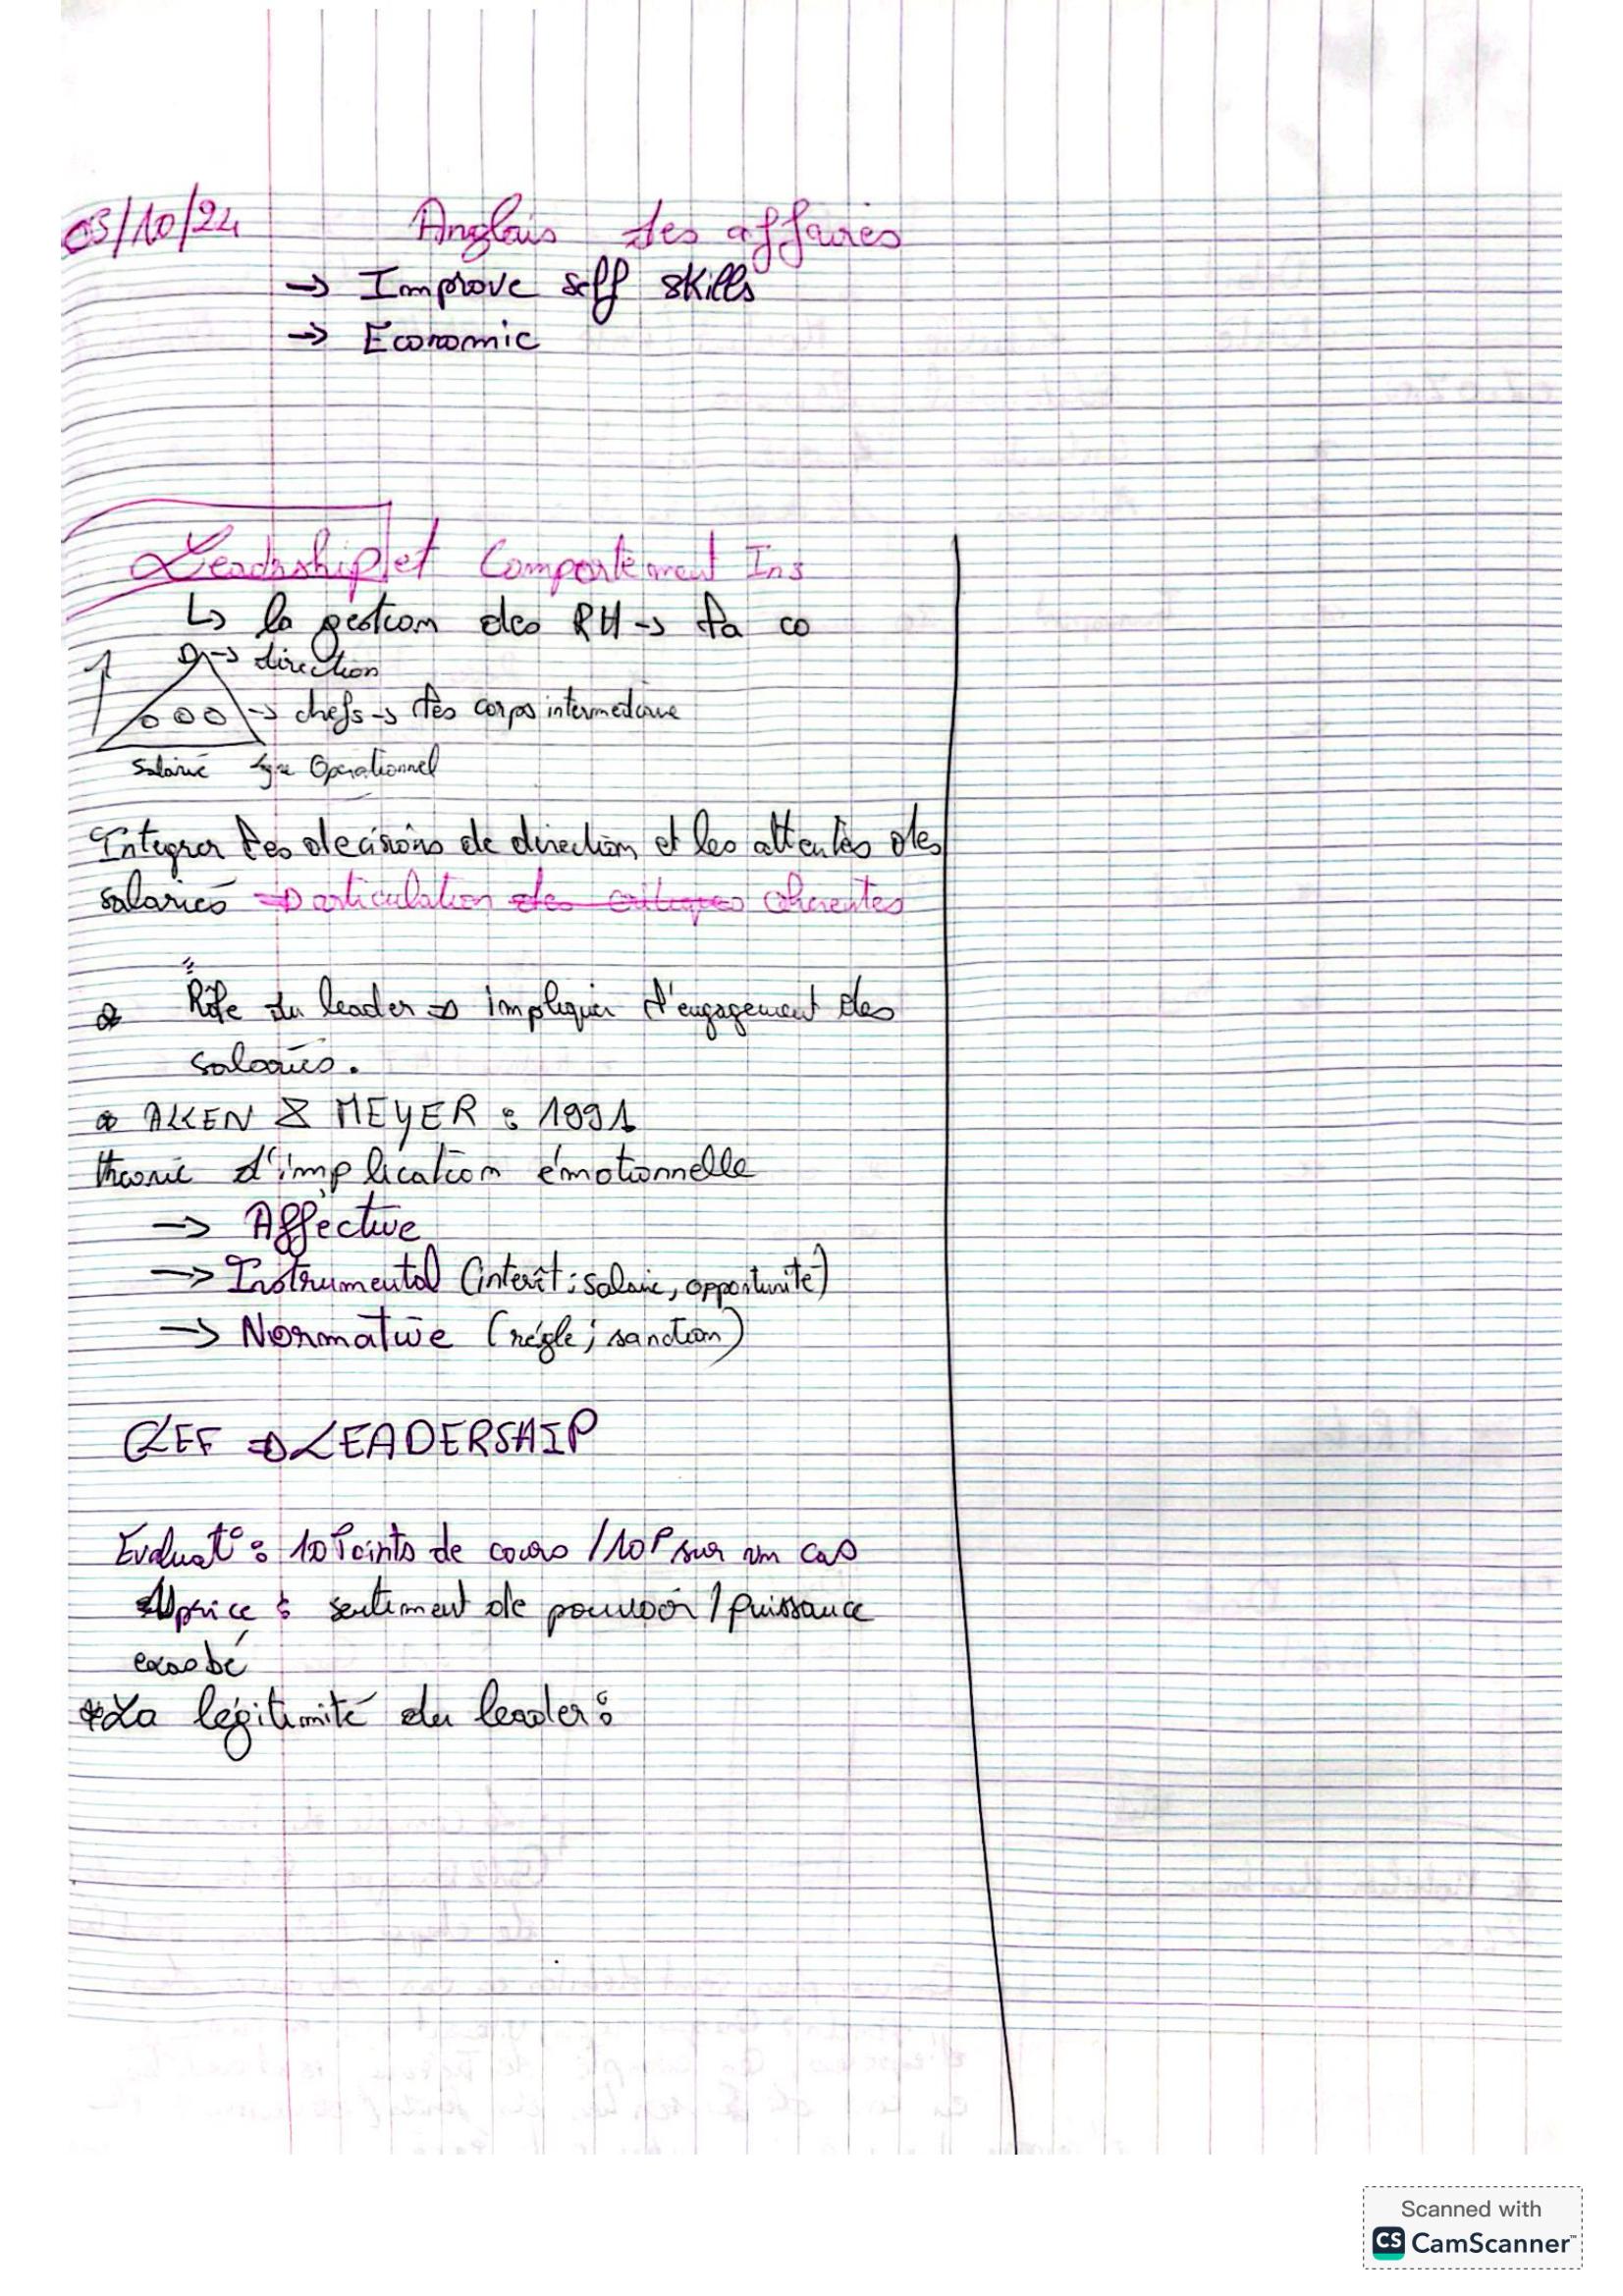 03/10/24 Anglais des affaires
→ Improve self skills
→ Economic
Leadership et Comportement Ins
↳ la gestion des RH → la co
→ direction
→ chefs → les corps intermediaire
Salarié Opérationnel
Integrer les decisions de direction et les attentes des
salariés ⇒ articulation des critiques coherentes
Rôle du leader ⇒ impliquer l'engagement des
salariés.
ALLEN & MEYER : 1991
theorie d'implication émotionnelle
→ Affective
→ Instrumental (interêt : salaire, opportunité)
→ Normative (régle ; sanction)
CLEF ⇒ LEADERSHIP
Evaluat° : 10 Points de cours / 10P sur un cas
: sentiment de pouvoir / puissance
*La légitimité du leader :
Scanned with
CS CamScanner™